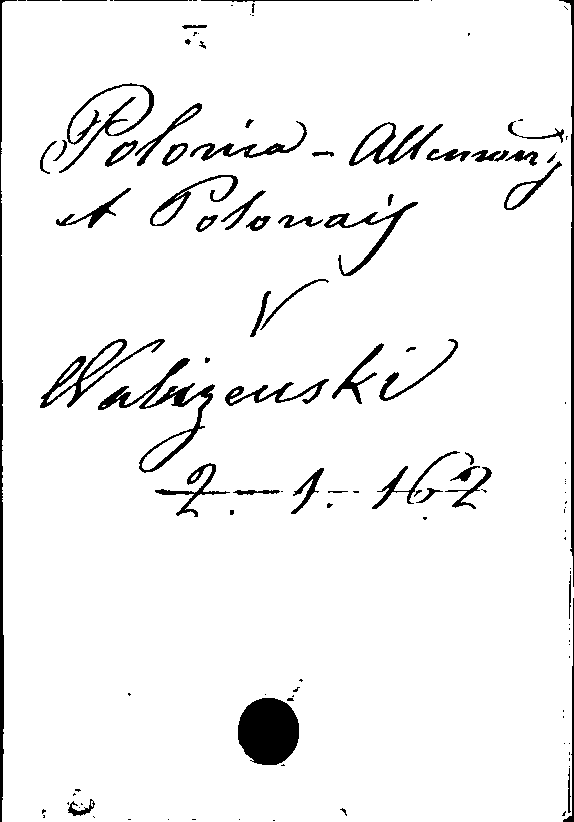 Polonica - Allemany
et Polonais
V
Wabizeuski
2. - 1. - 162